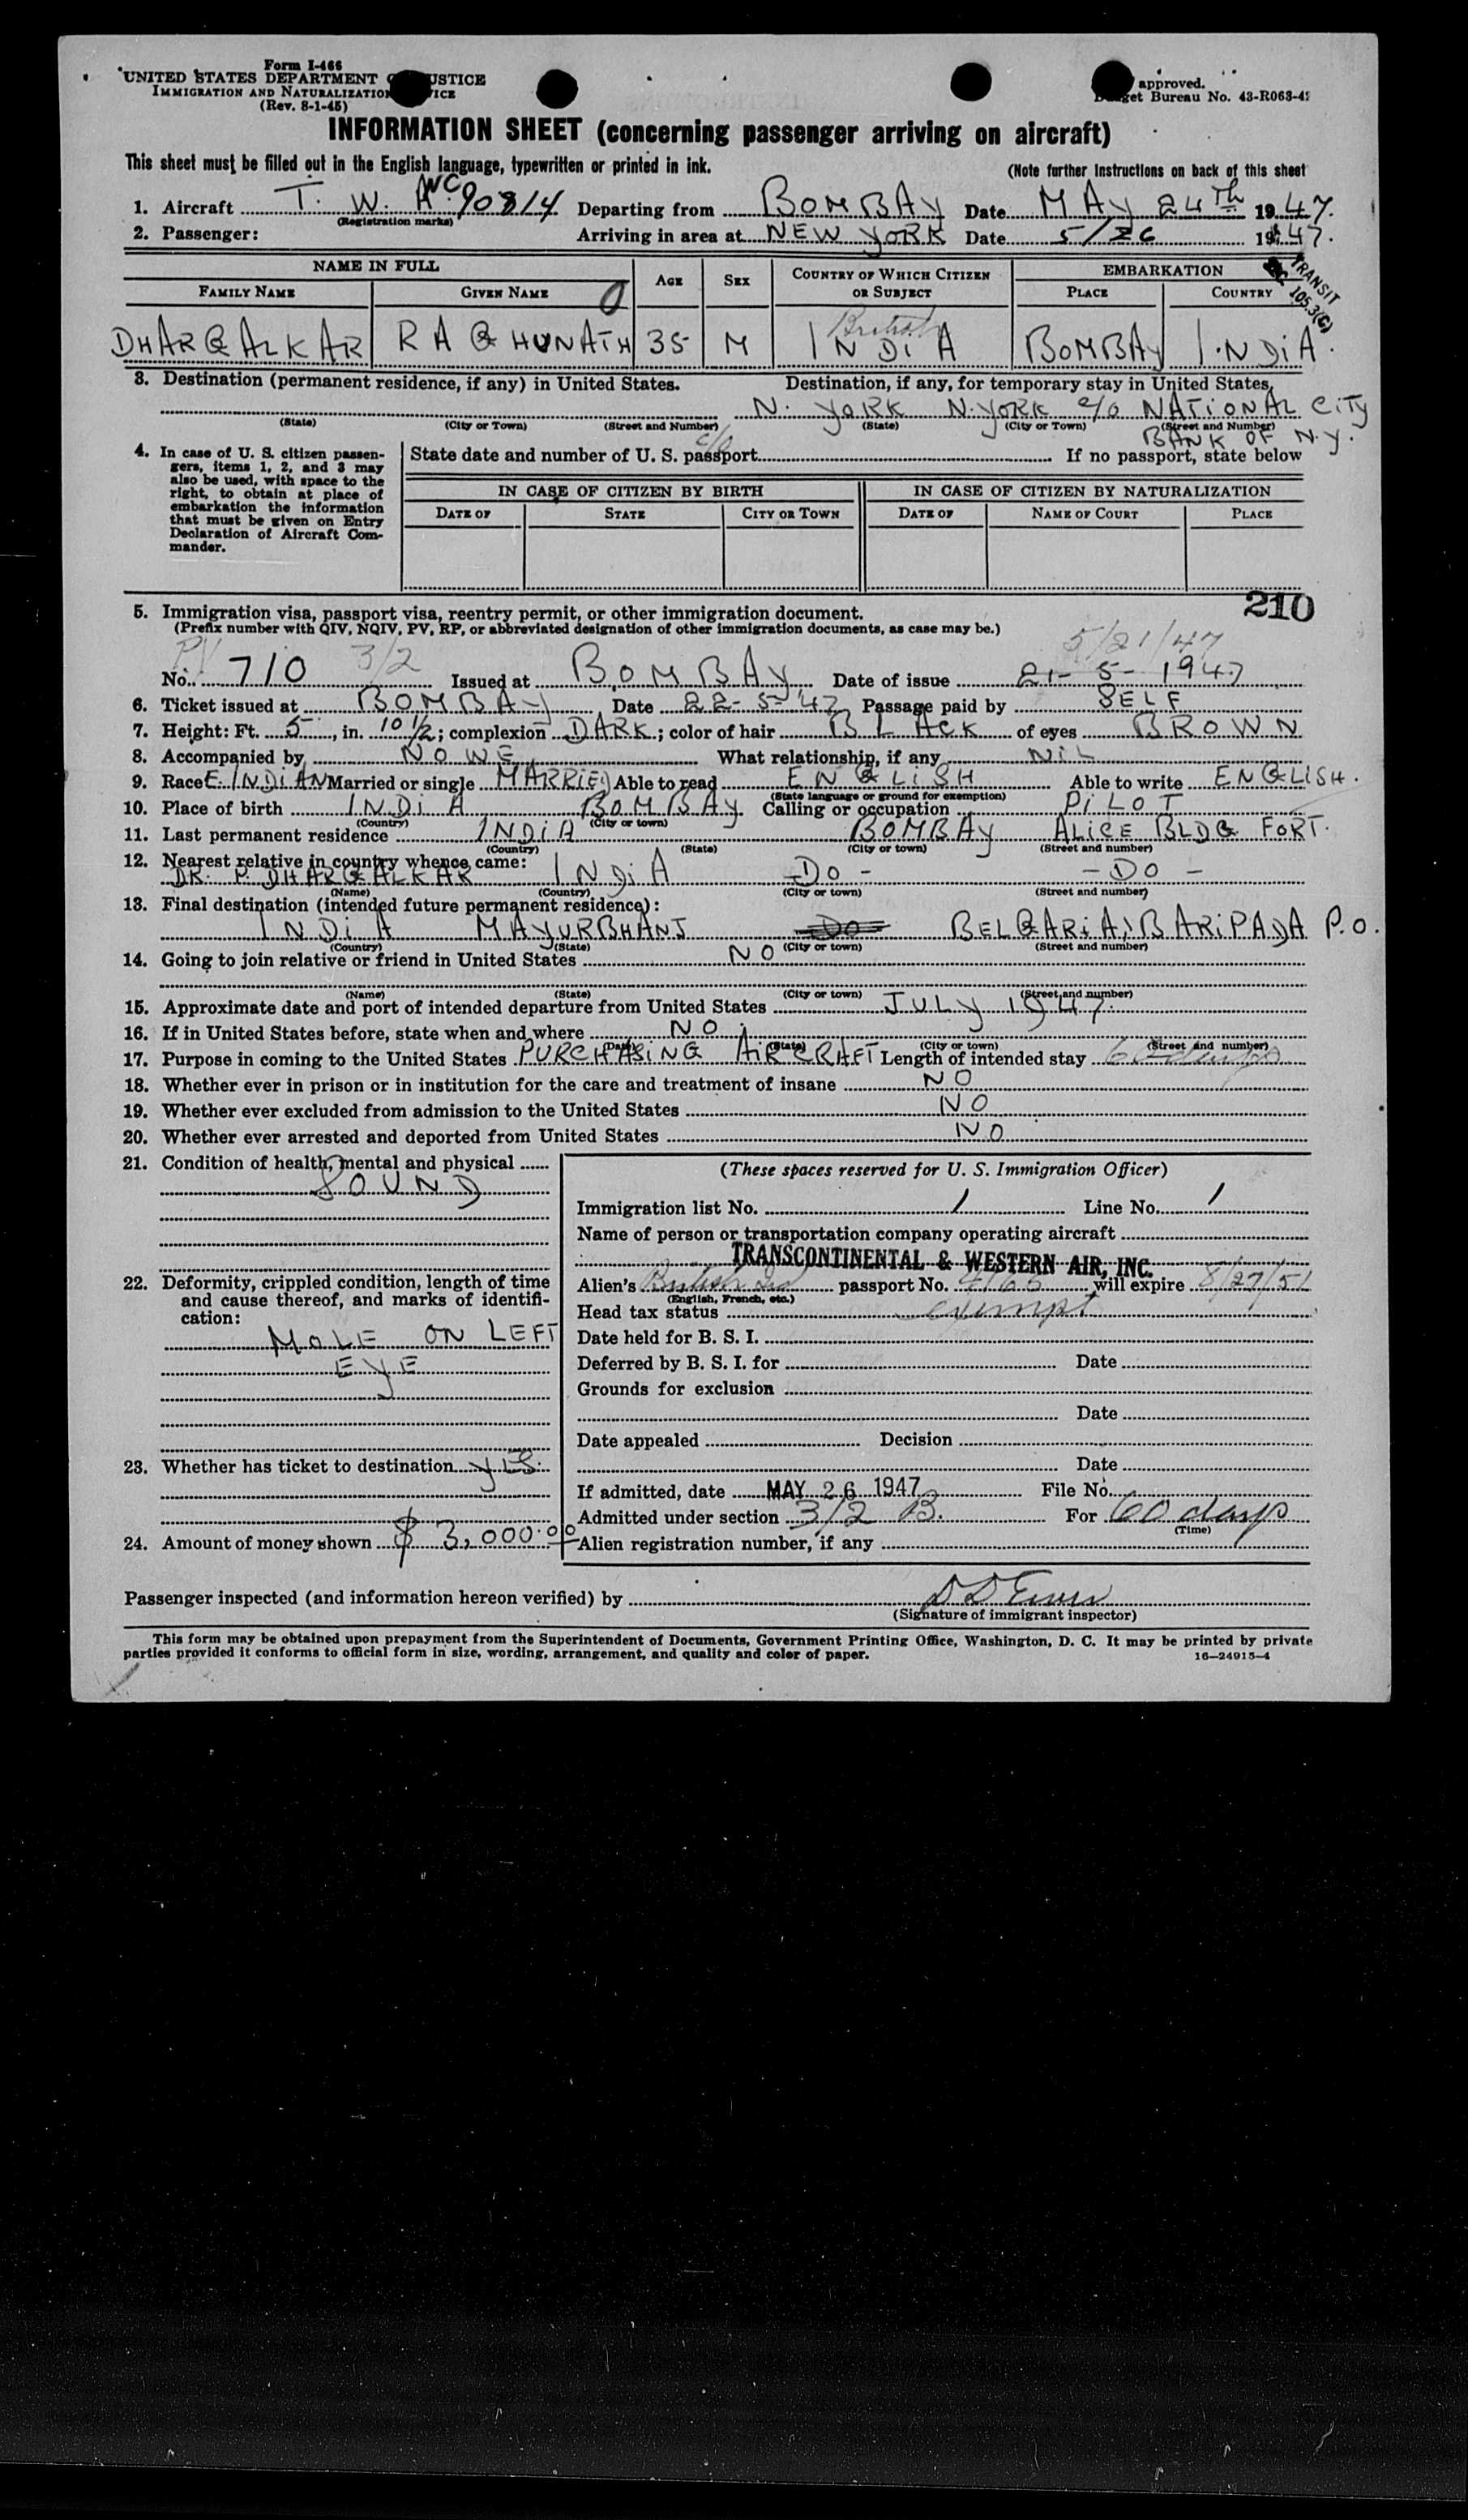 Form I-466
UNITED STATES DEPARTMENT OF JUSTICE
IMMIGRATION AND NATURALIZATION SERVICE
(Rev. 8-1-45)
approved.
Budget Bureau No. 43-R063-4
INFORMATION SHEET (concerning passenger arriving on aircraft)
This sheet must be filled out in the English language, typewritten or printed in ink. (Note further instructions on back of this sheet
1. Aircraft T. W. A. NC 90814 (Registration marks) Departing from BOMBAY Date MAY 24th 1947.
2. Passenger: Arriving in area at NEW YORK Date 5/26 1947.
NAME IN FULL AGE SEX COUNTRY OF WHICH CITIZEN OR SUBJECT EMBARKATION
FAMILY NAME GIVEN NAME PLACE COUNTRY
TRANSIT 105.3(C)
0
British
DHARGALKAR RAGHUNATH 35 M INDIA BOMBAY INDIA.
3. Destination (permanent residence, if any) in United States. Destination, if any, for temporary stay in United States,
N. YORK N. YORK c/o NATIONAL CITY
(State) (City or Town) (Street and Number) (State) (City or Town) (Street and Number)
BANK OF N.Y.
c/o
4. In case of U. S. citizen passengers, items 1, 2, and 3 may also be used, with space to the right, to obtain at place of embarkation the information that must be given on Entry Declaration of Aircraft Commander.
State date and number of U. S. passport If no passport, state below
IN CASE OF CITIZEN BY BIRTH IN CASE OF CITIZEN BY NATURALIZATION
DATE OF STATE CITY OR TOWN DATE OF NAME OF COURT PLACE
210
5. Immigration visa, passport visa, reentry permit, or other immigration document.
(Prefix number with QIV, NQIV, PV, RP, or abbreviated designation of other immigration documents, as case may be.)
5/21/47
No. PV 710 3/2 Issued at BOMBAY Date of issue 21-5-1947
6. Ticket issued at BOMBAY Date 22-5-47 Passage paid by SELF
7. Height: Ft. 5, in. 10 1/2; complexion DARK; color of hair BLACK of eyes BROWN
8. Accompanied by NONE What relationship, if any NIL
9. Race E. INDIAN Married or single MARRIED Able to read ENGLISH Able to write ENGLISH.
(State language or ground for exemption)
10. Place of birth INDIA BOMBAY Calling or occupation PILOT
(Country) (City or town)
11. Last permanent residence INDIA BOMBAY ALICE BLDG FORT.
(Country) (State) (City or town) (Street and number)
12. Nearest relative in country whence came:
DR. P. DHARGALKAR INDIA -DO- -DO-
(Name) (Country) (City or town) (Street and number)
13. Final destination (intended future permanent residence):
INDIA MAYURBHANJ DO BELGARIA, BARIPADA P.O.
(Country) (State) (City or town) (Street and number)
14. Going to join relative or friend in United States NO
(Name) (State) (City or town) (Street and number)
15. Approximate date and port of intended departure from United States JULY 1947.
16. If in United States before, state when and where NO.
(Date) (State) (City or town) (Street and number)
17. Purpose in coming to the United States PURCHASING AIRCRAFT Length of intended stay 60 days
18. Whether ever in prison or in institution for the care and treatment of insane NO
19. Whether ever excluded from admission to the United States NO
20. Whether ever arrested and deported from United States NO
21. Condition of health, mental and physical
SOUND
22. Deformity, crippled condition, length of time and cause thereof, and marks of identification:
MOLE ON LEFT
EYE
23. Whether has ticket to destination YES.
24. Amount of money shown $ 3,000.00
(These spaces reserved for U. S. Immigration Officer)
Immigration list No. 1 Line No. 1
Name of person or transportation company operating aircraft
TRANSCONTINENTAL & WESTERN AIR, INC.
Alien's British Ind passport No. will expire 8/27/51
(English, French, etc.)
Head tax status exempt
Date held for B. S. I.
Deferred by B. S. I. for Date
Grounds for exclusion
Date
Date appealed Decision
Date
If admitted, date MAY 26 1947 File No.
Admitted under section 3/2 B. For 60 days
(Time)
Alien registration number, if any
Passenger inspected (and information hereon verified) by
(Signature of immigrant inspector)
This form may be obtained upon prepayment from the Superintendent of Documents, Government Printing Office, Washington, D. C. It may be printed by private
parties provided it conforms to official form in size, wording, arrangement, and quality and color of paper. 16—24915-4